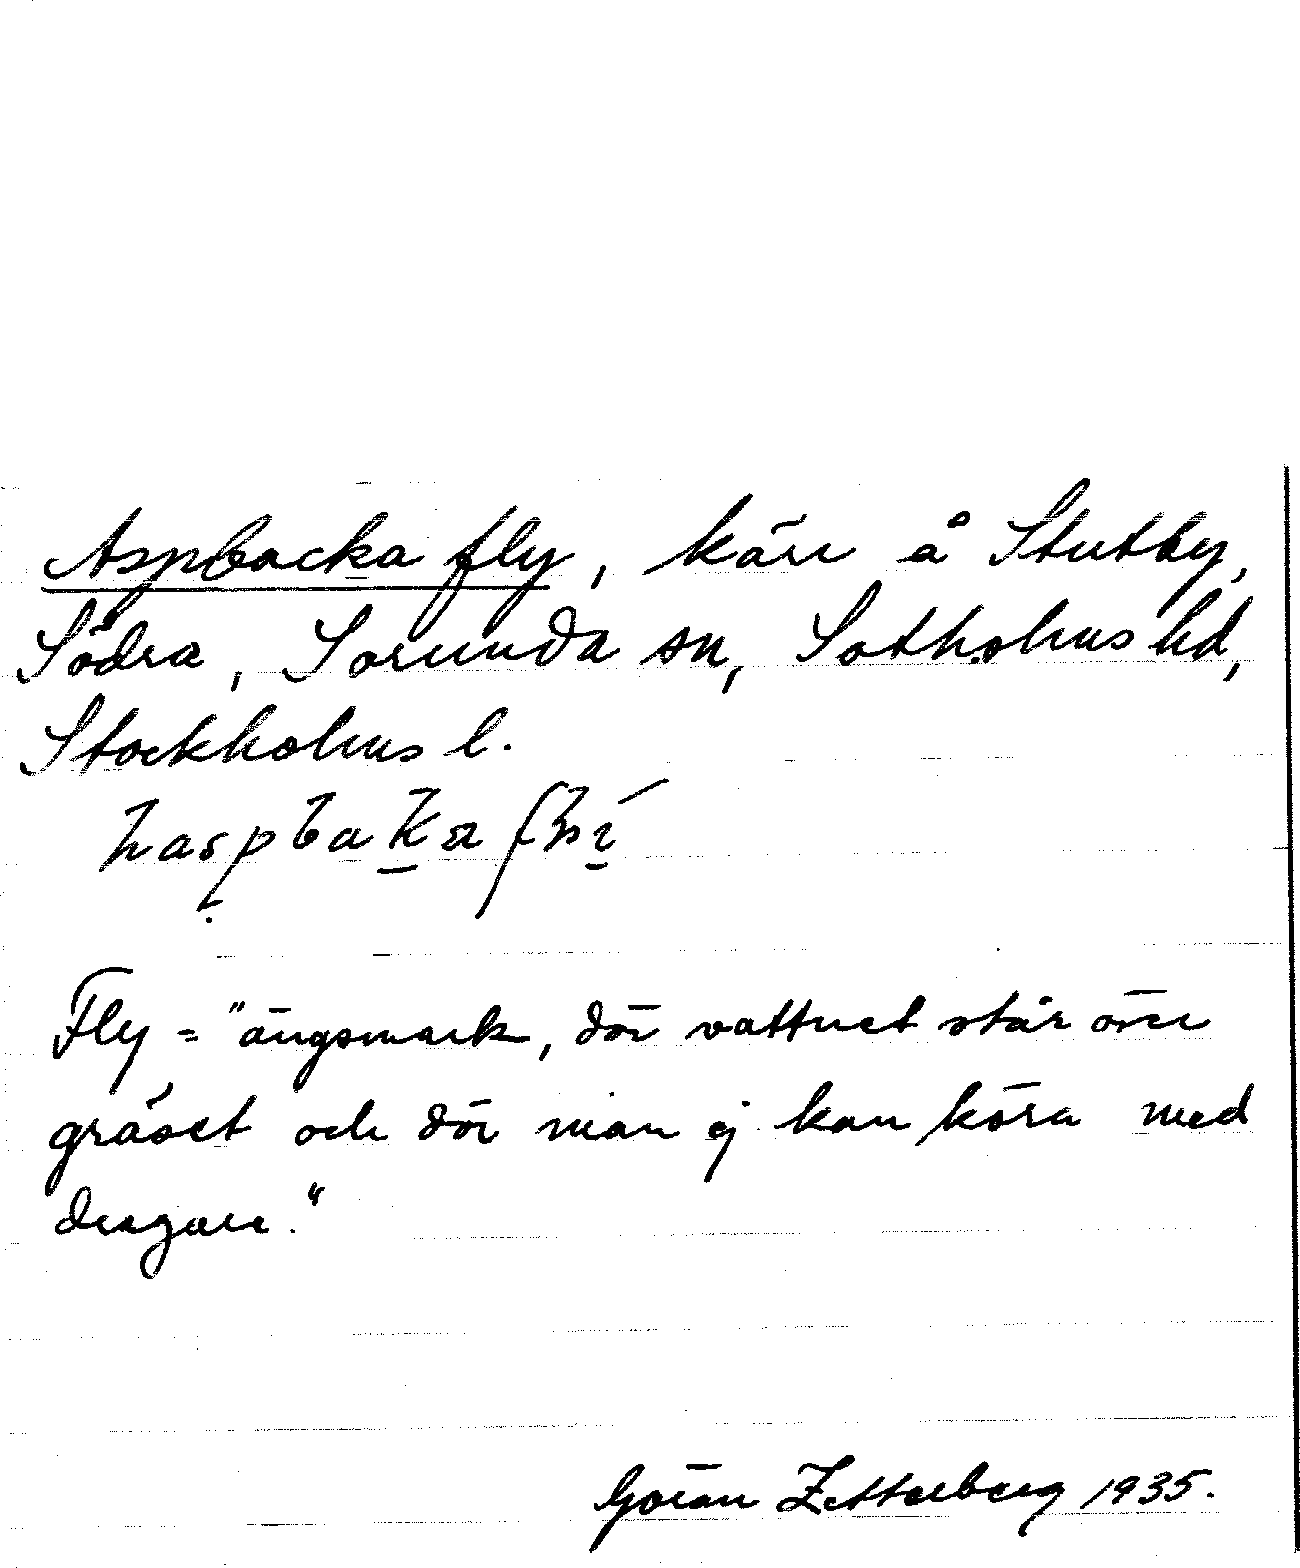 Aspbacka fly, kärr å Stutby,
Södra, Sorunda sn, Sotholms hd,
Stockholms l.
Fly = "ängsmark, där vattnet står över
gräset och där man ej kan köra med
dragare."
Göran Zetterberg 1935.